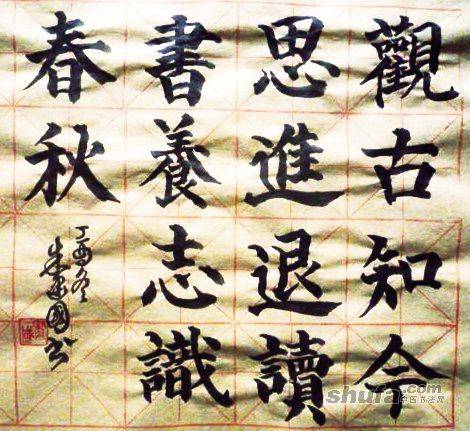 觀古知今
思進退讀
書養志識
春秋
丁酉冬
國书
shufa.com